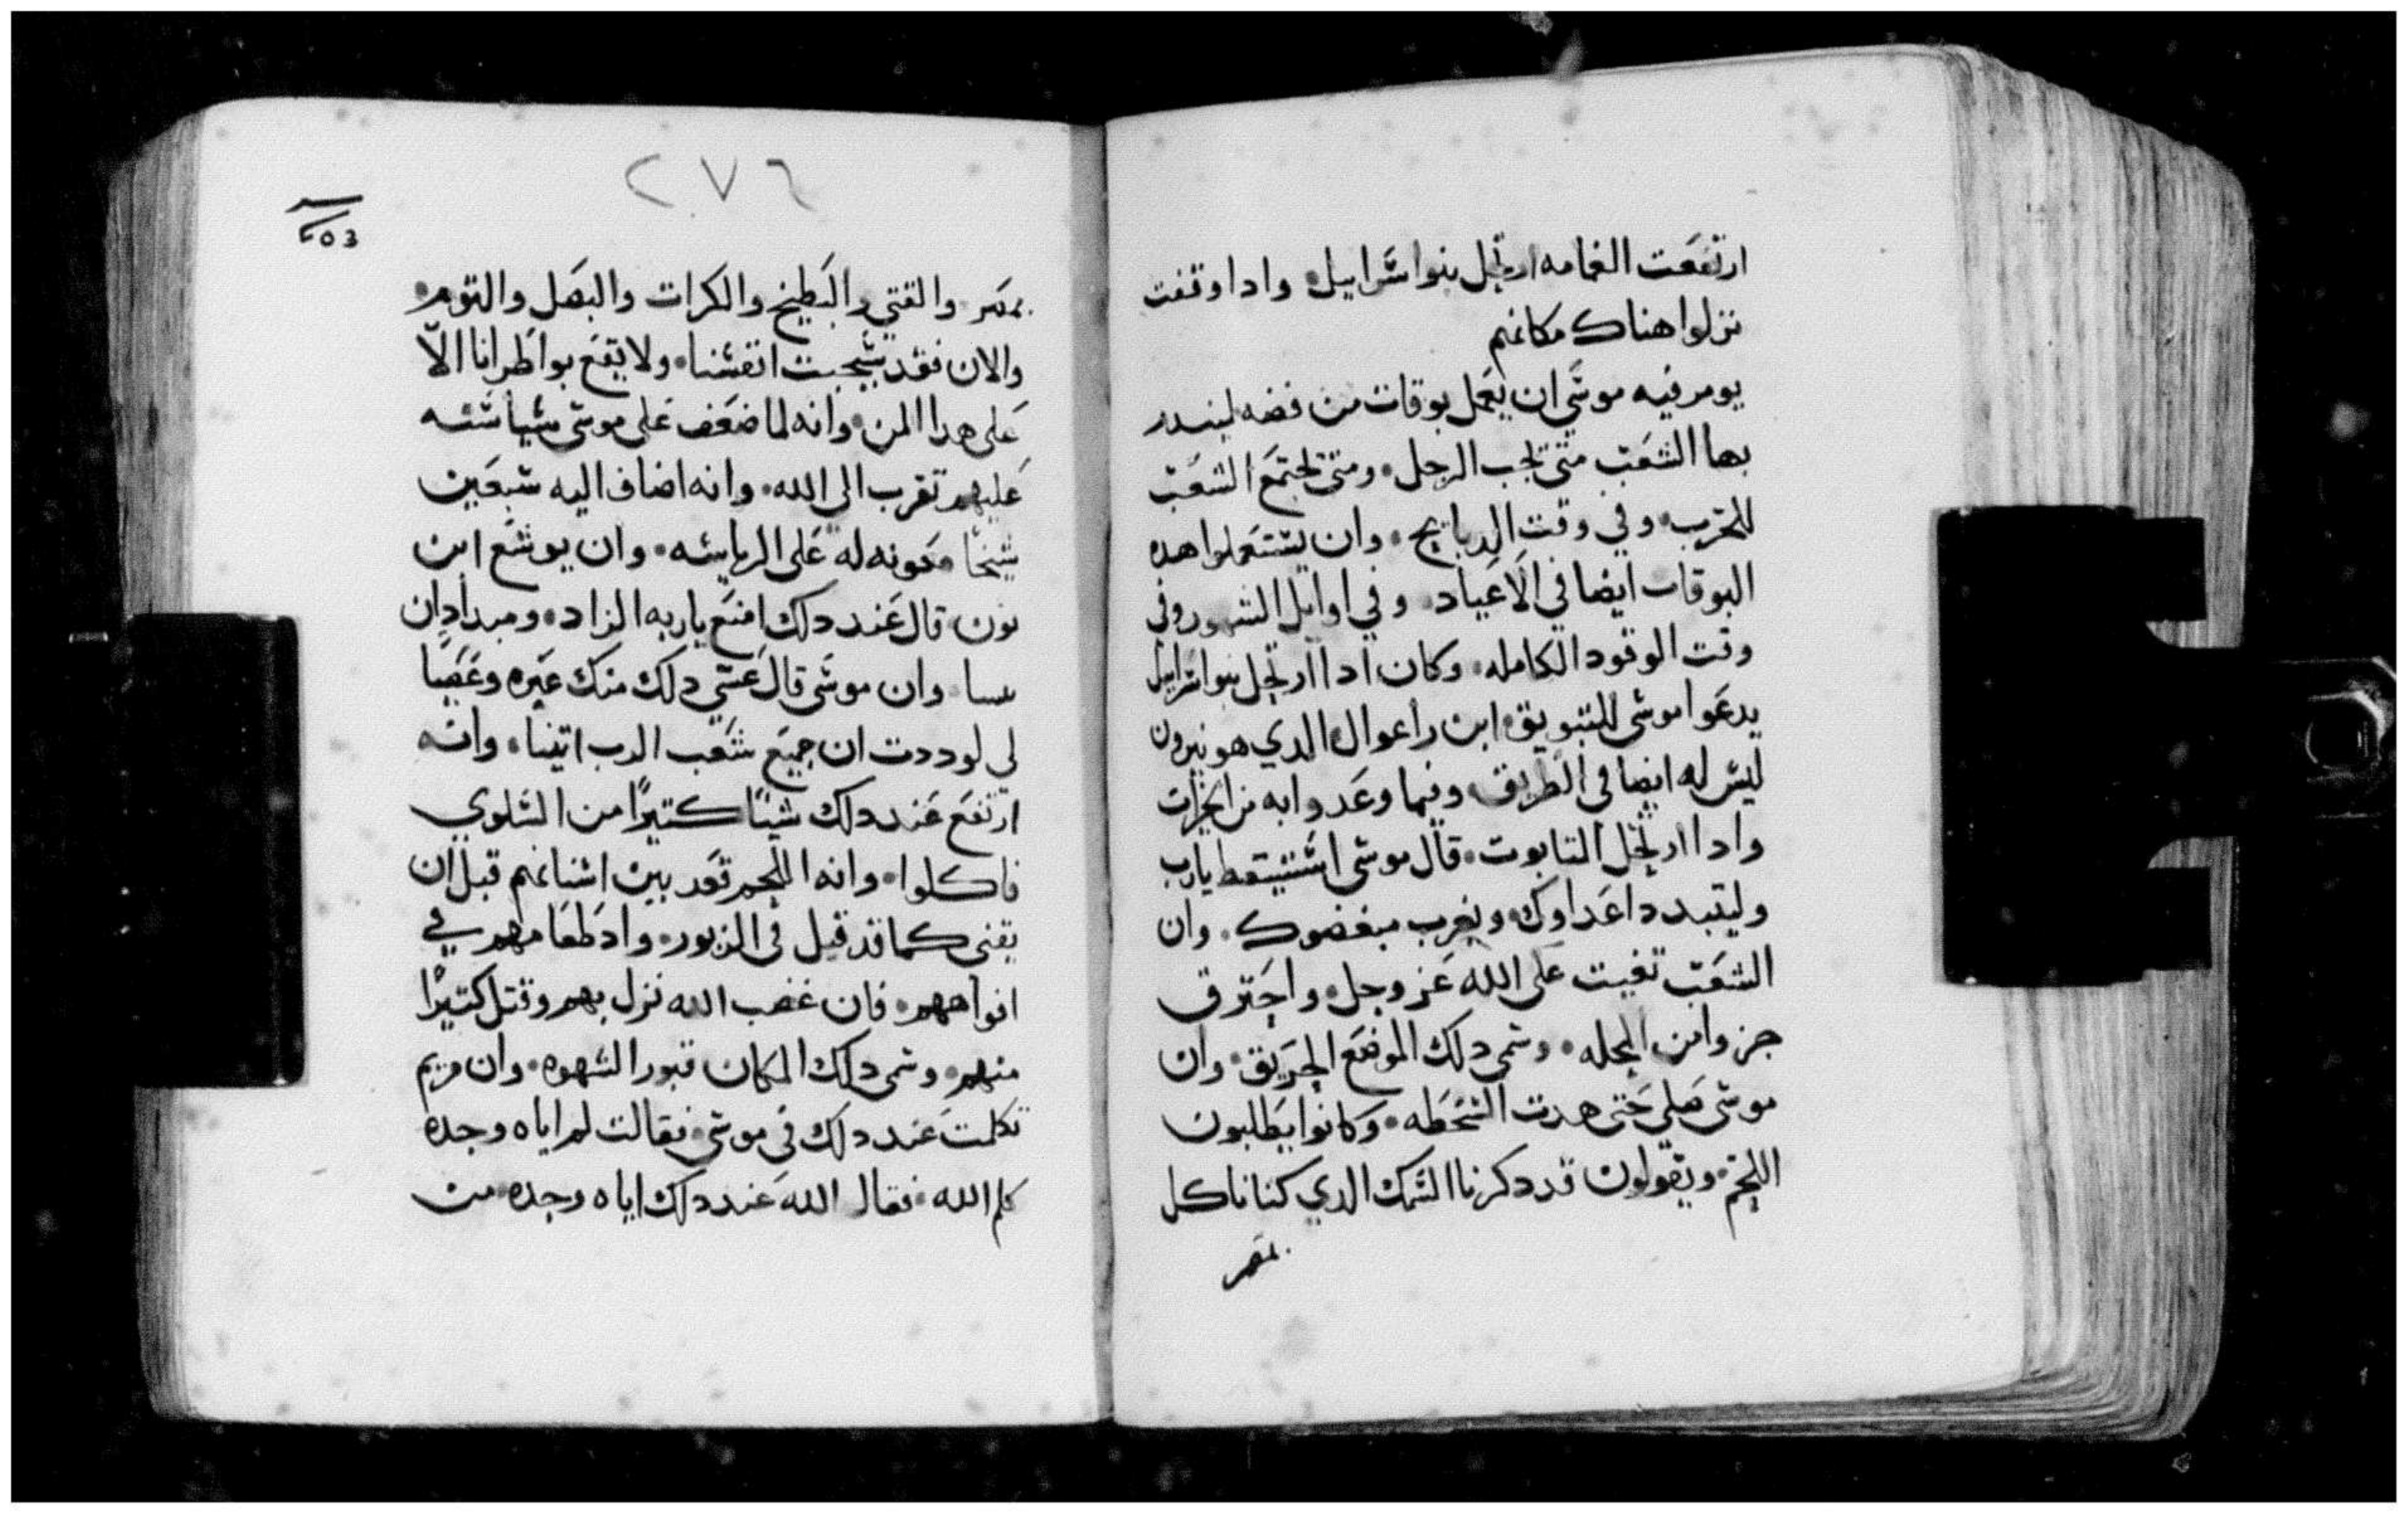 ارتفعت الغمامه ارتحل بنوا اسراييل٠ وادا وقفت
نزلوا هناك مكانهم
يومر فيه موسي ان يعمل بوقات من فضه لينـدر
بها الشعب متى يجب الرحل٠ ومتى يجتمع الشعب
للحرب٠ وفي وقت الدبايح٠ وان يستعملوا هده
البوقات ايضا في الاعياد٠ وفي اوايل الشهور وفي
وقت الوقود الكامله٠ وكان ادا ارتحل بنوا اسراييل
يدعوا موسى للتبويق٠ ابن راعوال الدي هو يثرون
ليس له ايضا في الطريق٠ وفيما وعدوا به من الخيرات
وادا ارتحل التابوت٠ قال موسى استيقط يارب
وليتبدد اعداوك٠ ويهرب مبغضوك٠ وان
الشعب تقمت على الله عز وجل٠ واحترق
جزوا من المحله٠ وسمى دلك الموضع الحريق٠ وان
موسى صلى حتى هدت السخطه٠ وكانوا يطلبون
اللحم٠ ويقولون قد دكرنا السمك الدي كنا ناكل
بمصر
٢٧٦
بمصر٠ والقتي والبطيخ والكرات والبصل والتوم٠
والان فقد شحبت انفسنا٠ ولا يقع بواطرانا الّا
على هدا المن٠ وانه لما ضعف على موسى سياسته
عليهم تقرب الى الله٠ وانه اضاف اليه سبعين
شيخًا معونه له على الرياسه٠ وان يوشع ابن
نون٠ قال عند دلك امنع ياربه الزاد٠ وميداد ان
وان موسى قال عسي دلك منك غيره وغضبًا
لي لوددت ان جميع شعب الرب انبيا٠ وانه
ارتفع عند دلك شيًا كتيرًا من السلوي
فاكلوا٠ وانه اللحم بعد بين اسنانهم قبل ان
يفنى كما قد قيل في الزبور٠ واد طعامهم في
افواههم٠ فان غضب الله نزل بهم وقتل كتيرًا
منهم٠ وسمى دلك المكان قبور الشهوه٠ وان مريم
تكلمت عند دلك في موسى٠ فقالت لم اياه وحده
كلم الله٠ فقال الله عند دلك اياه وحده من